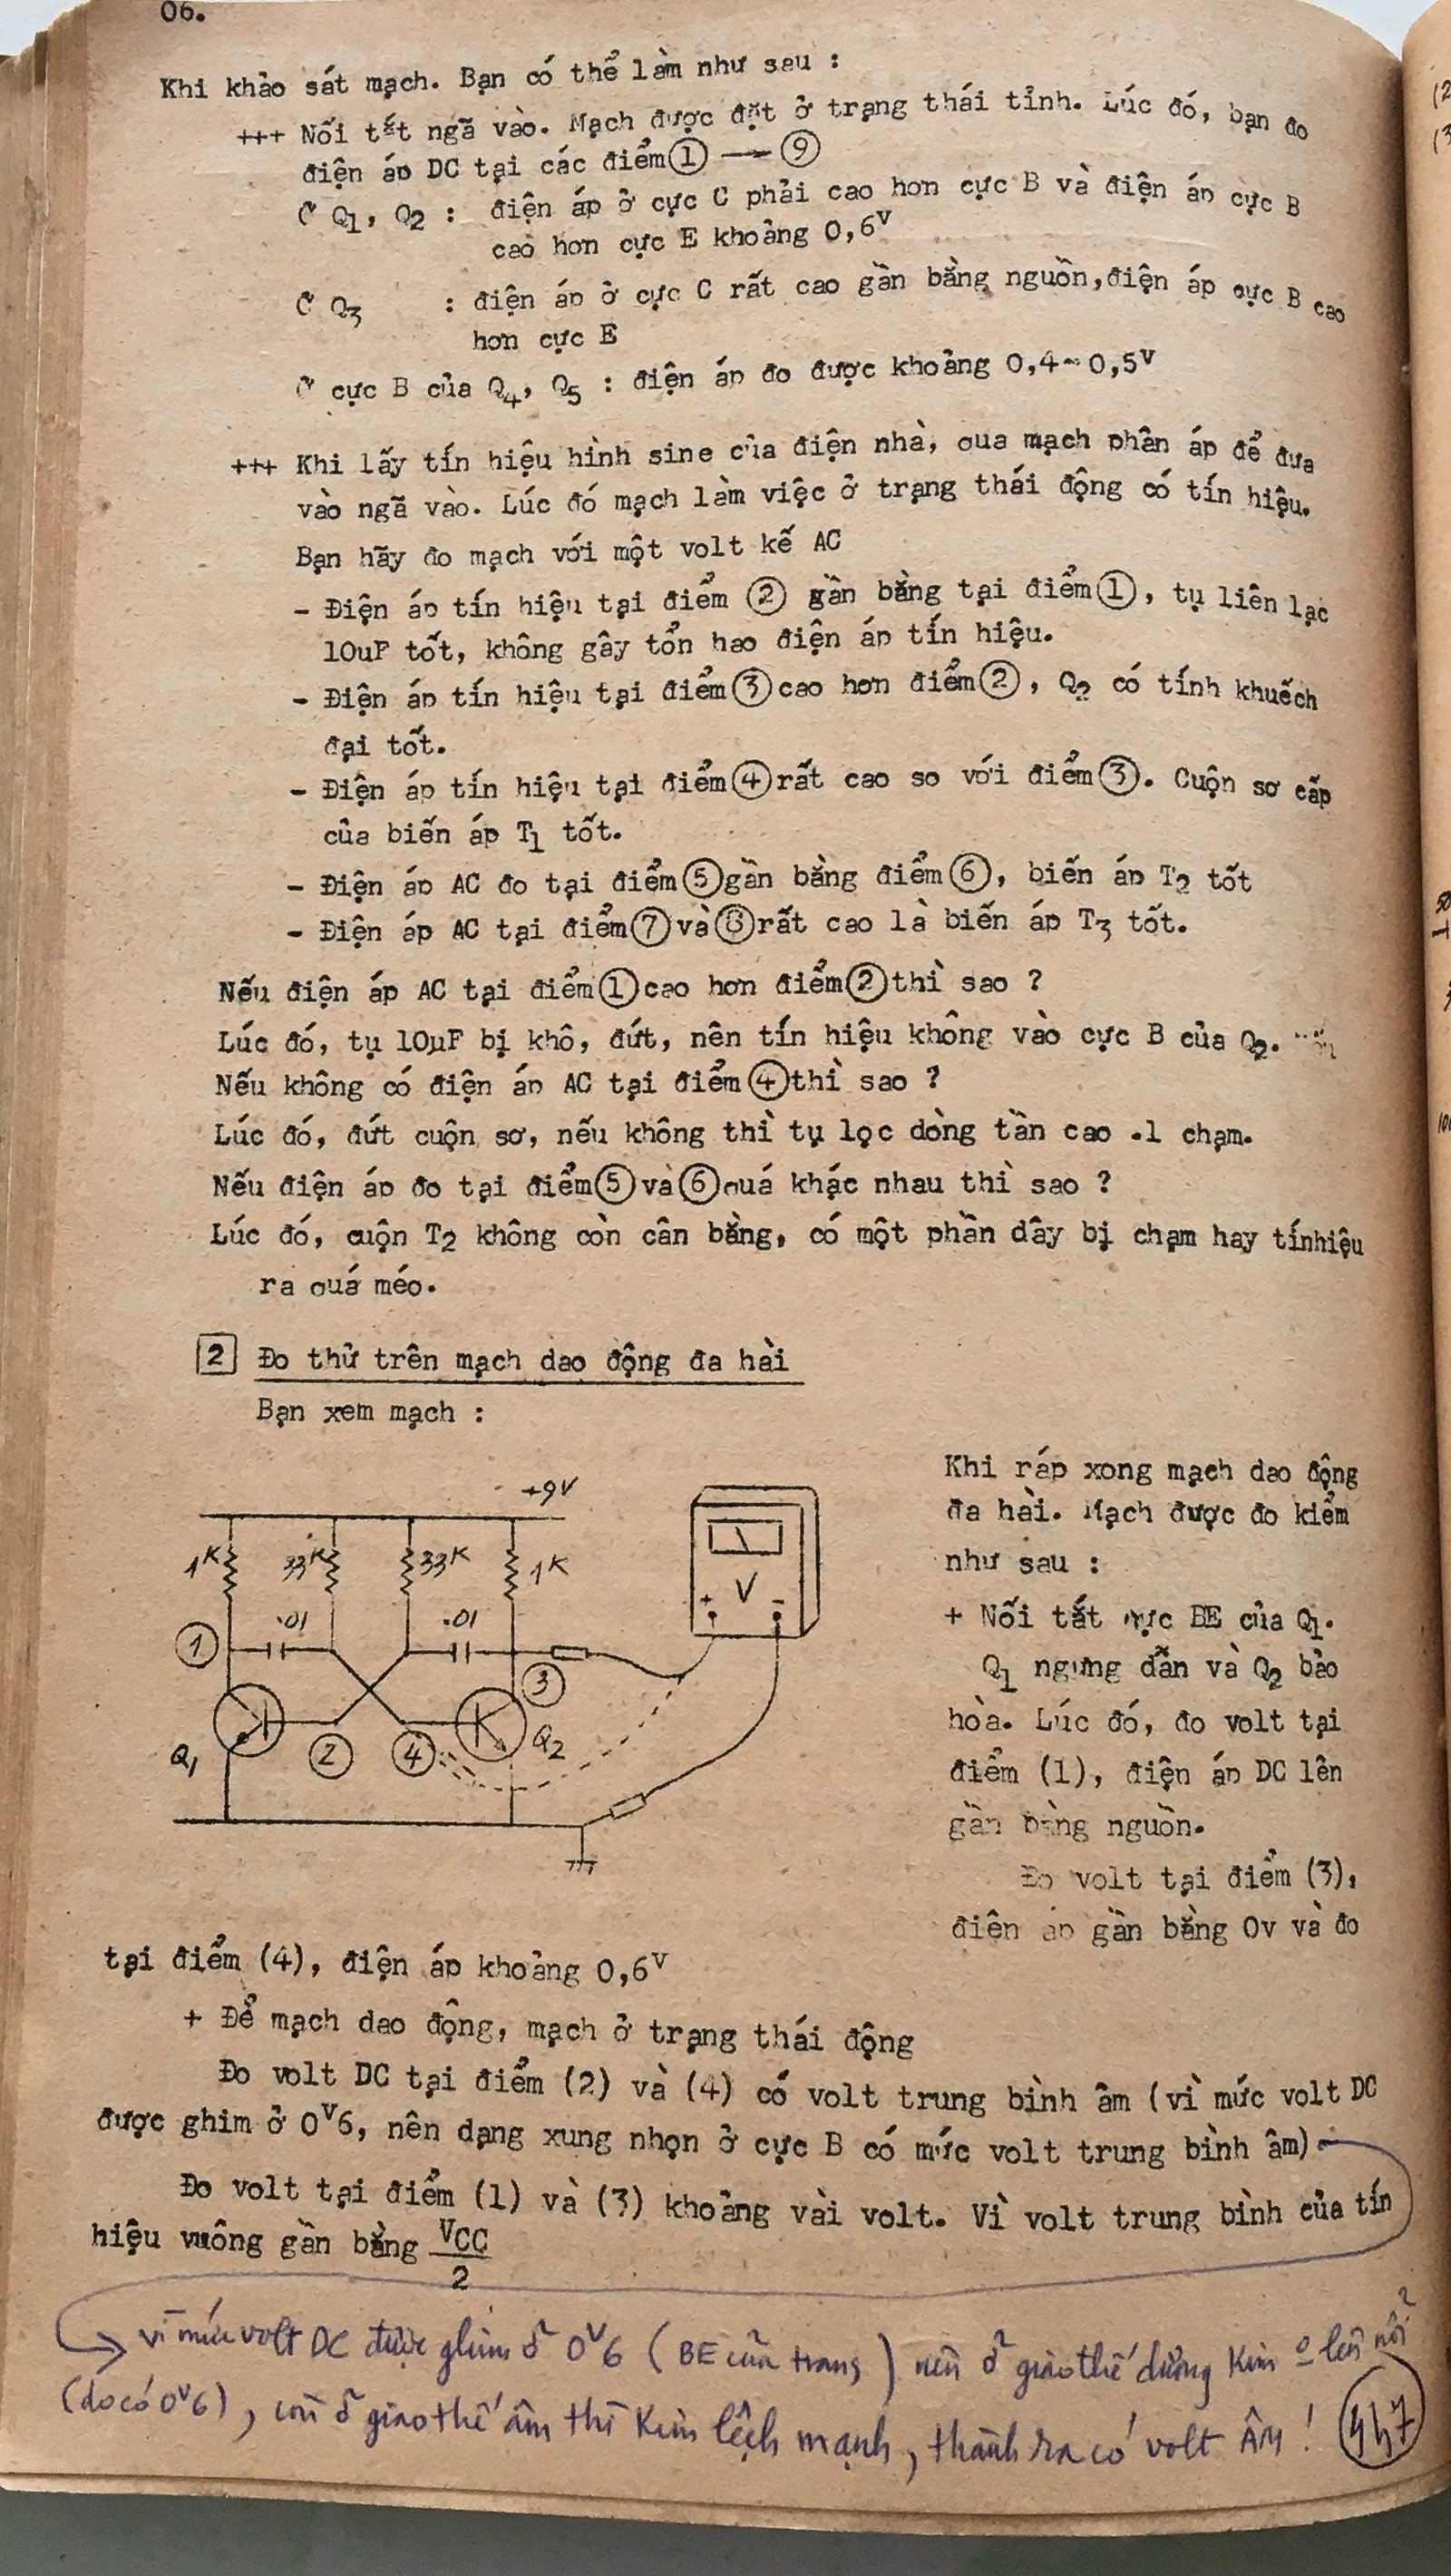 06.
Khi khảo sát mạch. Bạn có thể làm như sau :
+++ Nối tắt ngã vào. Mạch được đặt ở trạng thái tỉnh. Lúc đó, bạn đo
điện áp DC tại các điểm ① — ⑨
Ở Q1, Q2 : điện áp ở cực C phải cao hơn cực B và điện áp cực B
cao hơn cực E khoảng 0,6V
Ở Q3 : điện áp ở cực C rất cao gần bằng nguồn, điện áp cực B cao
hơn cực E
Ở cực B của Q4, Q5 : điện áp đo được khoảng 0,4~0,5V
+++ Khi lấy tín hiệu hình sine của điện nhà, qua mạch phân áp để đưa
vào ngã vào. Lúc đó mạch làm việc ở trạng thái động có tín hiệu.
Bạn hãy đo mạch với một volt kế AC
- Điện áp tín hiệu tại điểm ② gần bằng tại điểm ①, tụ liên lạc
10uF tốt, không gây tổn hao điện áp tín hiệu.
- Điện áp tín hiệu tại điểm ③ cao hơn điểm ②, Q2 có tính khuếch
đại tốt.
- Điện áp tín hiệu tại điểm ④ rất cao so với điểm ③. Cuộn sơ cấp
của biến áp T1 tốt.
- Điện áp AC đo tại điểm ⑤ gần bằng điểm ⑥, biến áp T2 tốt
- Điện áp AC tại điểm ⑦ và ⑧ rất cao là biến áp T3 tốt.
Nếu điện áp AC tại điểm ① cao hơn điểm ② thì sao ?
Lúc đó, tụ 10µF bị khô, đứt, nên tín hiệu không vào cực B của Q2.
Nếu không có điện áp AC tại điểm ④ thì sao ?
Lúc đó, đứt cuộn sơ, nếu không thì tụ lọc dòng tần cao .1 chạm.
Nếu điện áp đo tại điểm ⑤ và ⑥ quá khác nhau thì sao ?
Lúc đó, cuộn T2 không còn cân bằng, có một phần dây bị chạm hay tínhiệu
ra quá méo.
2 Đo thử trên mạch dao động đa hài
Bạn xem mạch :
+9V
1K 33K 33K 1K
.01 .01
V
+ -
① ③
Q1 ② ④ Q2
Khi ráp xong mạch dao động
đa hài. Mạch được đo kiểm
như sau :
+ Nối tắt cực BE của Q1.
Q1 ngưng dẫn và Q2 bảo
hòa. Lúc đó, đo volt tại
điểm (1), điện áp DC lên
gần bằng nguồn.
Đo volt tại điểm (3),
điện áp gần bằng 0v và đo
tại điểm (4), điện áp khoảng 0,6V
+ Để mạch dao động, mạch ở trạng thái động
Đo volt DC tại điểm (2) và (4) có volt trung bình âm (vì mức volt DC
được ghim ở 0V6, nên dạng xung nhọn ở cực B có mức volt trung bình âm)
Đo volt tại điểm (1) và (3) khoảng vài volt. Vì volt trung bình của tín
hiệu vuông gần bằng VCC
2
vì mức volt DC được ghim ở 0V6 (BE của trans) nên ở giao thế dương kim o lên nổi
(do có 0V6), còn ở giao thế âm thì kim lệch mạnh, thành ra có volt ÂM !